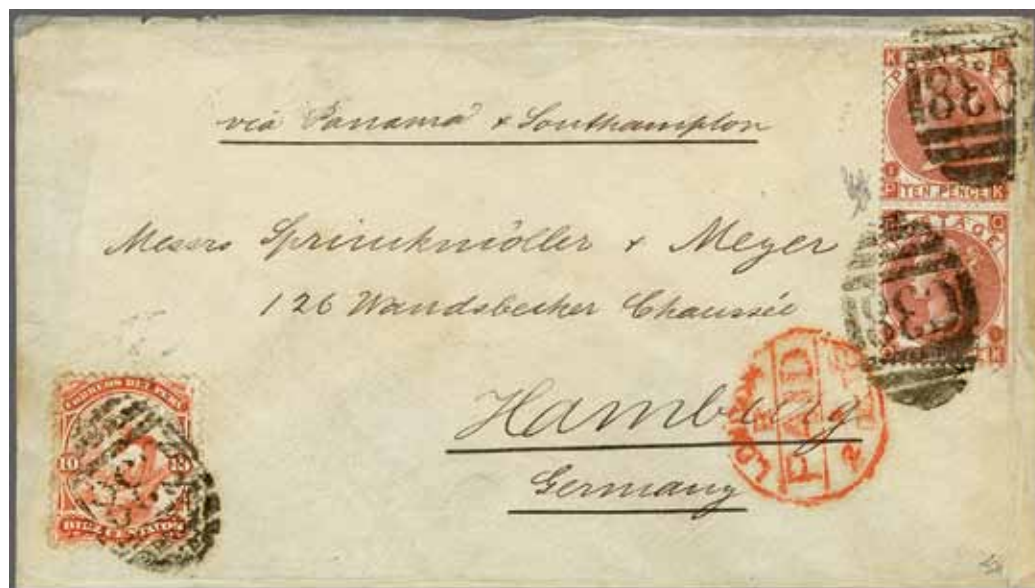 via Panamá & Southampton
Messrs Sprinckmöller & Meyer
126 Wandsbecker Chaussée
Hamburg
Germany
K
POSTAGE
C38
P TEN PENCE K
POSTAGE
C38
K
LONDON
PAID
2
CORREOS DEL PERU
10 10
DIEZ CENTAVOS